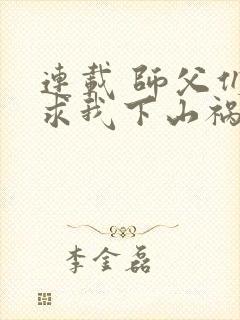 連載 師父们
求我下山禍
李金磊